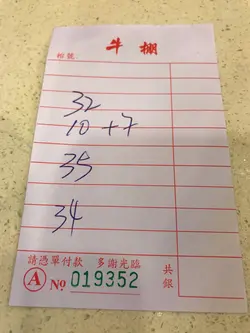 牛棚
檯號
32
10+7
35
34
請憑單付款 多謝光臨
共銀
A № 019352